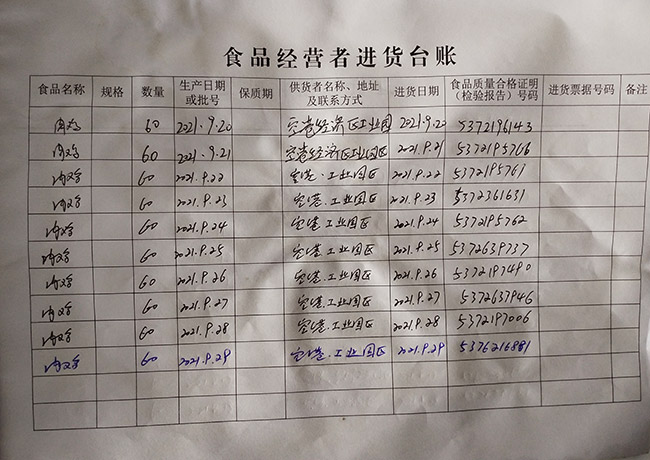 食品经营者进货台账
食品名称 规格 数量 生产日期或批号 保质期 供货者名称、地址及联系方式 进货日期 食品质量合格证明（检验报告）号码 进货票据号码 备注
肉鸡 60 2021.9.20 空港经济区工业园 2021.9.20 5372196143
肉鸡 60 2021.9.21 空港经济区工业园区 2021.9.21 5372195766
肉鸡 60 2021.9.22 空港.工业园区 2021.9.22 5372195761
肉鸡 60 2021.9.23 空港.工业园区 2021.9.23 5372361631
肉鸡 60 2021.9.24 空港.工业园区 2021.9.24 5372195762
肉鸡 60 2021.9.25 空港.工业园区 2021.9.25 5372639737
肉鸡 60 2021.9.26 空港.工业园区 2021.9.26 5372197490
肉鸡 60 2021.9.27 空港.工业园区 2021.9.27 5372637946
肉鸡 60 2021.9.28 空港.工业园区 2021.9.28 5372197006
肉鸡 60 2021.9.29 空港.工业园区 2021.9.29 5376216881